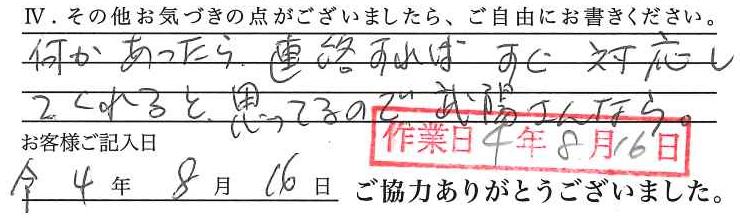 Ⅳ．その他お気づきの点がございましたら、ご自由にお書きください。
何かあったら、連絡すれば すぐ 対応し
てくれると、思ってるので 武陽さんなら。
作業日 4年8月16日
お客様ご記入日
令 4 年 8 月 16 日 ご協力ありがとうございました。